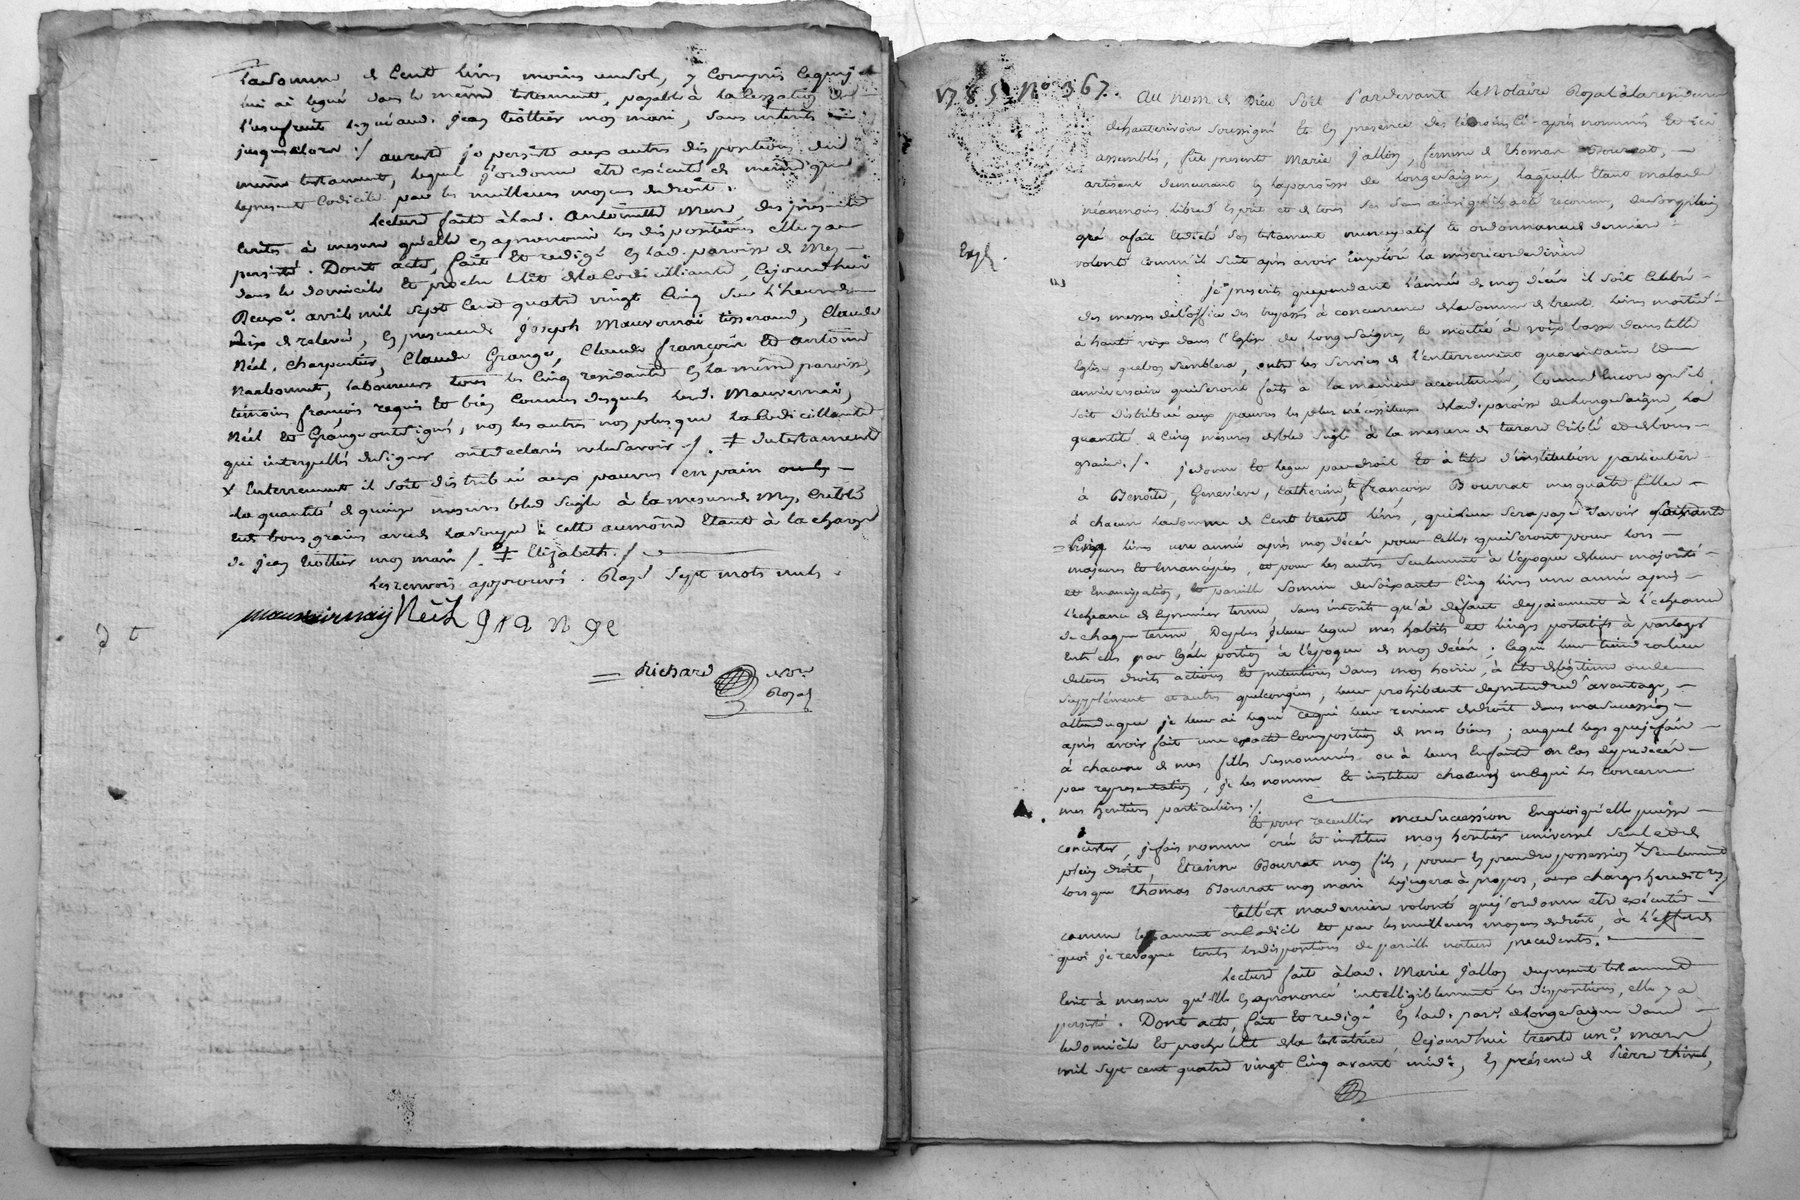 la somme de Cent livres moins un sol, y Compris ce que je
lui ai legué dans le même testament, payable à la Cessation de
l'usufruit legué aud. jean Trottier mon mari, sans interets
jusques alors ./. au reste je persiste aux autres dispositions dud.
même testament, lequel j'ordonne etre executé de même que
le present Codicile par les meilleurs moyens de droit.
Lecture faite à lad. Antoinette des presentes
Ecrites à mesure qu'elle en a prononcé les dispositions elle y a
persisté. Dont acte, fait et redigé en lad. paroisse de Mes
dans le domicile et proche le lit de la Codicilliante, Cejourd'huï
Deuxe. avril mil sept Cent quatre vingt Cinq sur l'heure de
Dix de relevée, en presence de Joseph Mauvernai tisserand, Claude
Néel, charpentier, Claude Grange, Claude françois et antoine
Narbonnet, laboureurs tous les Cinq residants en la même paroisse,
témoins françois requis et bien Connus desquels lesd. Mauvernai,
Néel et Grange ont signé, non les autres non plus que la Codicillante
qui interpellés de signer ont declarés ne le savoir ./. ‡ du testament
x Enterrement il soit distribué aux pauvres en pain
la quantité de quinze mesures bled seigle à la mesure de Mes, Criblé
et bons grains avec la soupe ; cette aumône Etant à la charge
de jean Trottier mon mari ./. ‡ Elizabeth ./.
Les renvois approuvés. Rayé sept mots nuls.
mauvernay Néel grange
Richard No.re
Royal
1785 No 367.
Au nom de Dieu soit Pardevant Le Notaire Royal à la residence
de hauterivoire soussigné et en presence des témoins Ci-après nommés et ici
assemblés, fut presente Marie Jallon, femme de Thomas Bourrat,
artisant demeurant en la paroisse de Longesaigne, laquelle Etant malade
néanmoins libre d'Esprit et de tous ses sens ainsi qu'il a été reconnu, de son plein
gré a fait et dicté son testament nuncupatif et ordonnance de derniere
volonté Comm'il suit après avoir imploré la misericorde divine
Expé.
je prescris que pendant l'année de mon décès il soit Celebré
des messes de l'office des trepassés à concurrence de la somme de trente livres moitié
à haute voix dans l'Eglise de Longesaigne, et moitié à voix basse dans telle
Eglise que bon semblera, outre les services de l'enterrement quarantaine et
anniversaire qui seront faits à la maniere acoutumée, Comm'encore qu'il
soit distribué aux pauvres les plus nécessiteux de lad. paroisse de Longesaigne, la
quantité de Cinq mésures de bled seigle à la mesure de tarare Criblé et de bons
grains ./. je donne et legue par droit et à titre d'institution particuliere
à Benoite, Genevieve, Catherine et françoise Bourrat mes quatre filles
à chacune la somme de Cent trente livres, qui leur sera payé Savoir soixante
Cinq livres une année après mon décès pour Celles qui seront pour lors
majeures et emancipées, et pour les autres seulement à l'époque de leur majorité
et Emancipation, et pareille somme de soixante Cinq livres une année après
l'échéance du premier terme, sans interêts qu'à defaut de paiement à l'échéance
de chaque terme, De plus je leur legue mes habits et linges portatifs à partager
entr'elles par Egale portion à l'époque de mon décès ; Ce qui leur tiendra lieu
de tous droits actions et pretentions dans mon hoirie, à titre de legitime ou de
supplément et autres quelconques, leur prohibant de pretendre d'avantage,
attendu que je leur ai legué ce qui leur revient de droit dans ma succession
après avoir fait une exacte Composition de mes biens ; auquel legs que je fais
à chacune de mes filles susnommées ou à leurs Enfants en Cas de predecès
par representation, je les nomme et institue chacune en ce qui les Concerne
mes heritieres particulieres ./.
Et pour recueillir ma succession En quoi qu'elle puisse
consister, je fais nomme crée et institue mon heritier universel seul et de
plein droit, Etienne Bourrat mon fils, pour en prendre possession x seulement
lorsque Thomas Bourrat mon mari le jugera à propos, aux charges hereditres
Telle est ma derniere volonté que j'ordonne etre exécutée
comme testament ou Codicile et par les meilleurs moyens de droit, à l'effet de
quoi je revoque toutes les dispositions de pareille nature precedentes.
Lecture faite à lad. Marie Jallon du present testament
Ecrit à mesure qu'elle en a prononcé intelligiblement les dispositions, elle y a
persisté. Dont acte, fait et redigé en lad. par. de Longesaigne dans
le domicile et proche le lit de la testatrice, Cejourd'hui trente une. mars
mil sept cent quatre vingt Cinq avant midi, en présence de Pierre Thivel,